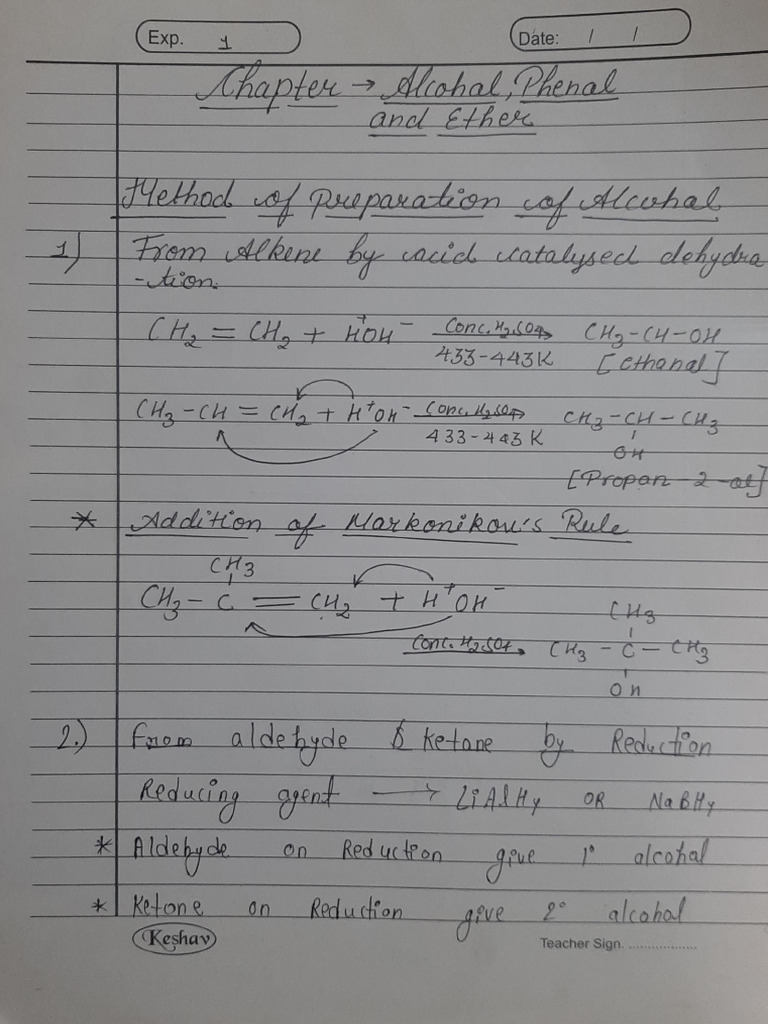 Exp. 1
Date: / /
Chapter → Alcohal, Phenal
and Ether
Method of preparation of Alcohal
1) From Alkene by acid catalysed dehydra
-tion.
CH2 = CH2 + H+OH- Conc. H2SO4→ CH3-CH-OH
433-443K [ethanal]
CH3-CH = CH2 + H+OH- Conc. H2SO4→ CH3-CH-CH3
433-443K OH
[Propan-2-al]
* Addition of Markonikov's Rule
CH3
CH3-C = CH2 + H+OH-
CH3
Conc. H2SO4→ CH3-C-CH3
OH
2.) From aldehyde & ketone by Reduction
Reducing agent → LiAlH4 OR NaBH4
* Aldehyde on Reduction give 1° alcohal
* Ketone on Reduction give 2° alcohal
Keshav
Teacher Sign. ..................